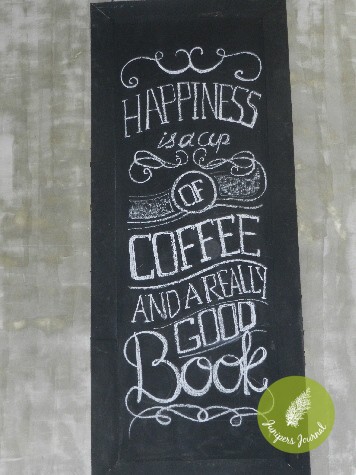 HAPPINESS
is a cup
OF
COFFEE
AND A REALLY
GOOD
Book
Junipers Journal